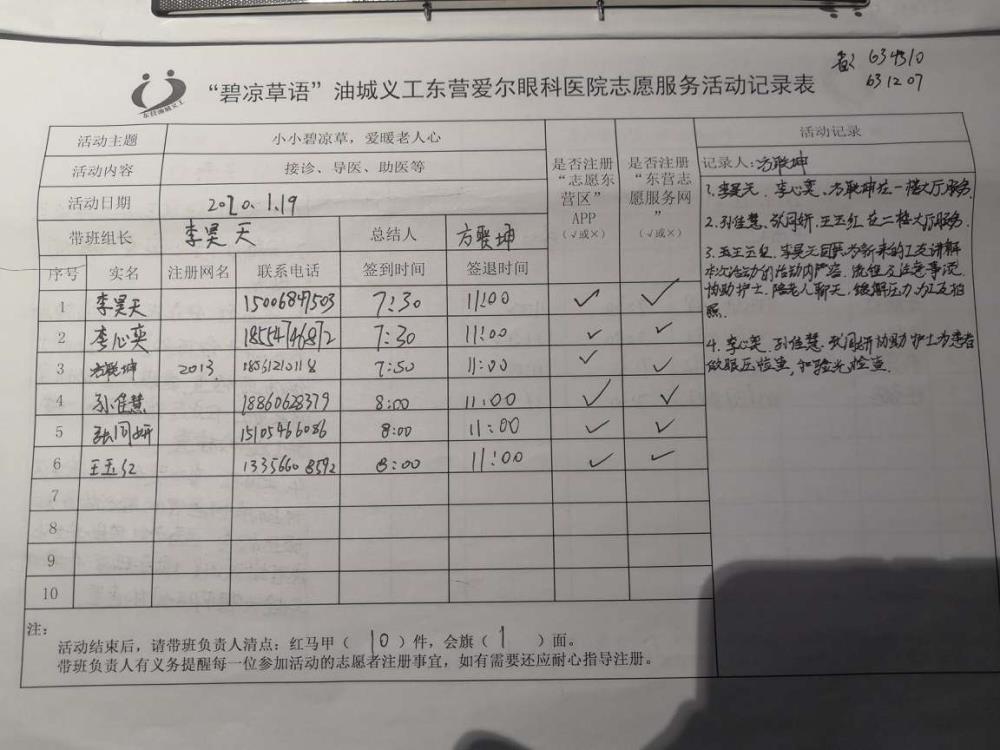 634310
631207
东营油城义工
“碧凉草语”油城义工东营爱尔眼科医院志愿服务活动记录表
活动主题 小小碧凉草，爱暖老人心 是否注册“志愿东营区”APP（√或×） 是否注册“东营志愿服务网”（√或×） 活动记录
活动内容 接诊、导医、助医等
活动日期 2020.1.19
带班组长 李昊天 总结人 方联坤
序号 实名 注册网名 联系电话 签到时间 签退时间
1 李昊天 15006847503 7:30 11:00 ✓ ✓
2 李心奕 18554746872 7:30 11:00 ✓ ✓
3 方联坤 2013 7:50 11:00 ✓ ✓
4 孙佳慧 18860628379 8:00 11:00 ✓ ✓
5 张同妍 15105466086 8:00 11:00 ✓ ✓
6 王玉红 13356608592 8:00 11:00 ✓ ✓
7
8
9
10
记录人：方联坤
1.李昊天、李心奕、方联坤在一楼大厅服务
2.孙佳慧、张同妍、王玉红在二楼大厅服务.
3.王玉红、李昊天为新来的义工讲解
本次活动的活动内容、流程及注意事项
协助护士、陪老人聊天，缓解压力，为义工拍
照.
4.李心奕、孙佳慧、张同妍协助护士为患者
做眼压检查，和验光检查.
注：
活动结束后，请带班负责人清点：红马甲（10）件，会旗（1）面。
带班负责人有义务提醒每一位参加活动的志愿者注册事宜，如有需要还应耐心指导注册。